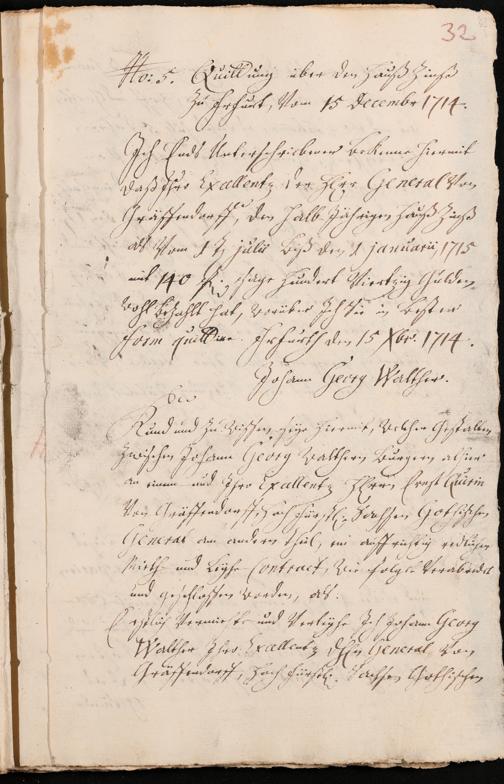 32
No: 5. Quittung über den Hauß Zinß
Zu Erfurt, Vom 15 Decembr 1714.
Ich Ends Unterschriebener bekenne hiermit
daß Ihro Excellentz der Herr General von
Gräffendorff, den halb Jährigen Hauß Zinß
als Vom 1 July biß den 1 januarii, 1715
mit 140 fl., sage hundert Viertzig Gulden,
wohl bezahlt hat, worüber Ich Sie in bester
form quittire. Erfurth den 15 Xbr. 1714.
Johann Georg Walther.
Kund und Zu Wißen seye hiermit, Welcher gestalten
Zwischen Johann Georg Walthern Bürgern alhier
an einem und Ihro Excellentz Herrn Ernst Quirin
Von Gräffendorff, Hochfürstl. Sachsen Gothischen
General am andern theil, ein auffrichtig redlicher
Mieth- und Contract, wie folget Verabredet
und geschloßen worden, als.
Erstlich Vermiethe und Verleyhe Ich Johann Georg
Walther Ihro Excellentz dem Herrn General von
Gräffendorff, Hochfürstl. Sachsen Gothischen